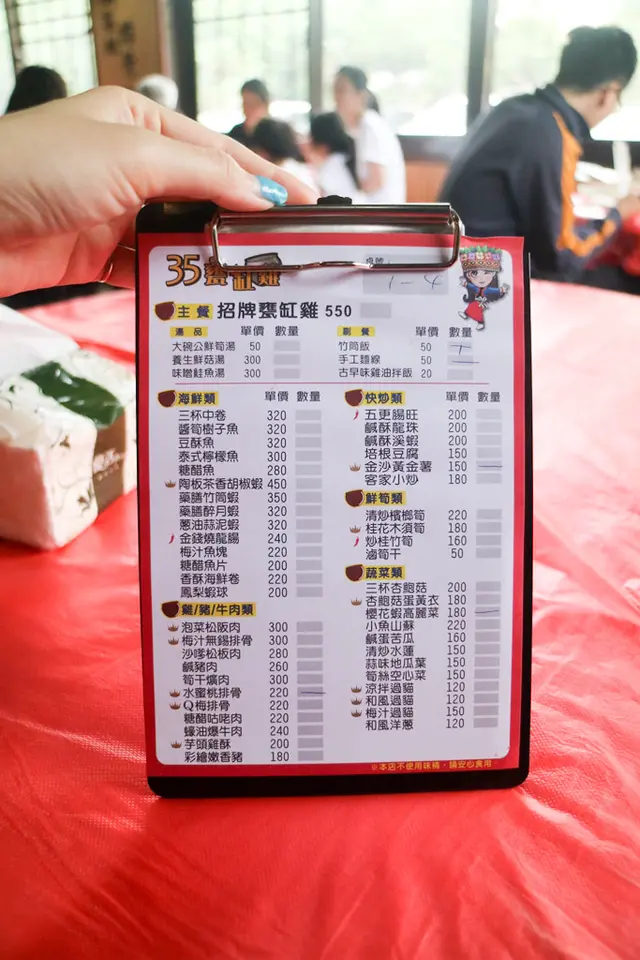 35甕缸雞
桌號：
1-4
主餐 招牌甕缸雞 550
湯品 單價 數量
大碗公鮮筍湯 50
養生鮮菇湯 300
味噌鮭魚湯 300
副餐 單價 數量
竹筒飯 50
手工麵線 50
古早味雞油拌飯 20
海鮮類 單價 數量
三杯中卷 320
醬筍樹子魚 320
豆酥魚 320
泰式檸檬魚 300
糖醋魚 280
陶板茶香胡椒蝦 450
藥膳竹筒蝦 350
藥膳醉月蝦 320
蔥油蒜泥蝦 320
金錢燒龍腸 240
梅汁魚塊 220
糖醋魚片 200
香酥海鮮卷 220
鳳梨蝦球 200
雞/豬/牛肉類
泡菜松阪肉 300
梅汁無錫排骨 300
沙嗲松板肉 280
鹹豬肉 260
筍干爌肉 300
水蜜桃排骨 220
Q梅排骨 220
糖醋咕咾肉 220
蠔油爆牛肉 240
芋頭雞酥 200
彩繪嫩香豬 180
快炒類 單價 數量
五更腸旺 200
鹹酥龍珠 200
鹹酥溪蝦 200
培根豆腐 150
金沙黃金薯 150
客家小炒 180
鮮筍類
清炒檳榔筍 220
桂花木須筍 180
炒桂竹筍 160
滷筍干 50
蔬菜類
三杯杏鮑菇 200
杏鮑菇蛋黃衣 180
櫻花蝦高麗菜 180
小魚山蘇 220
鹹蛋苦瓜 160
清炒水蓮 150
蒜味地瓜葉 150
筍絲空心菜 150
涼拌過貓 120
和風過貓 120
梅汁過貓 150
和風洋蔥 120
※本店不使用味精，請安心食用